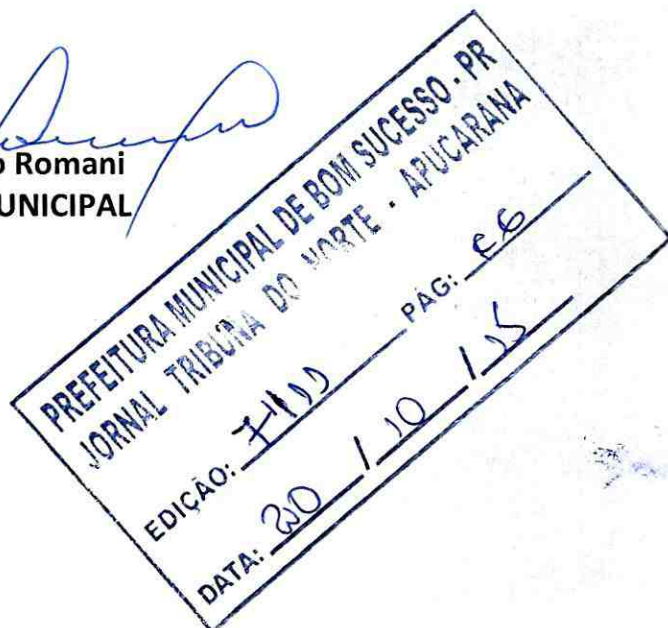 o Romani
UNICIPAL
PREFEITURA MUNICIPAL DE BOM SUCESSO - PR
JORNAL TRIBUNA DO NORTE - APUCARANA
EDIÇÃO: PÁG:
DATA: 20 / 10 /